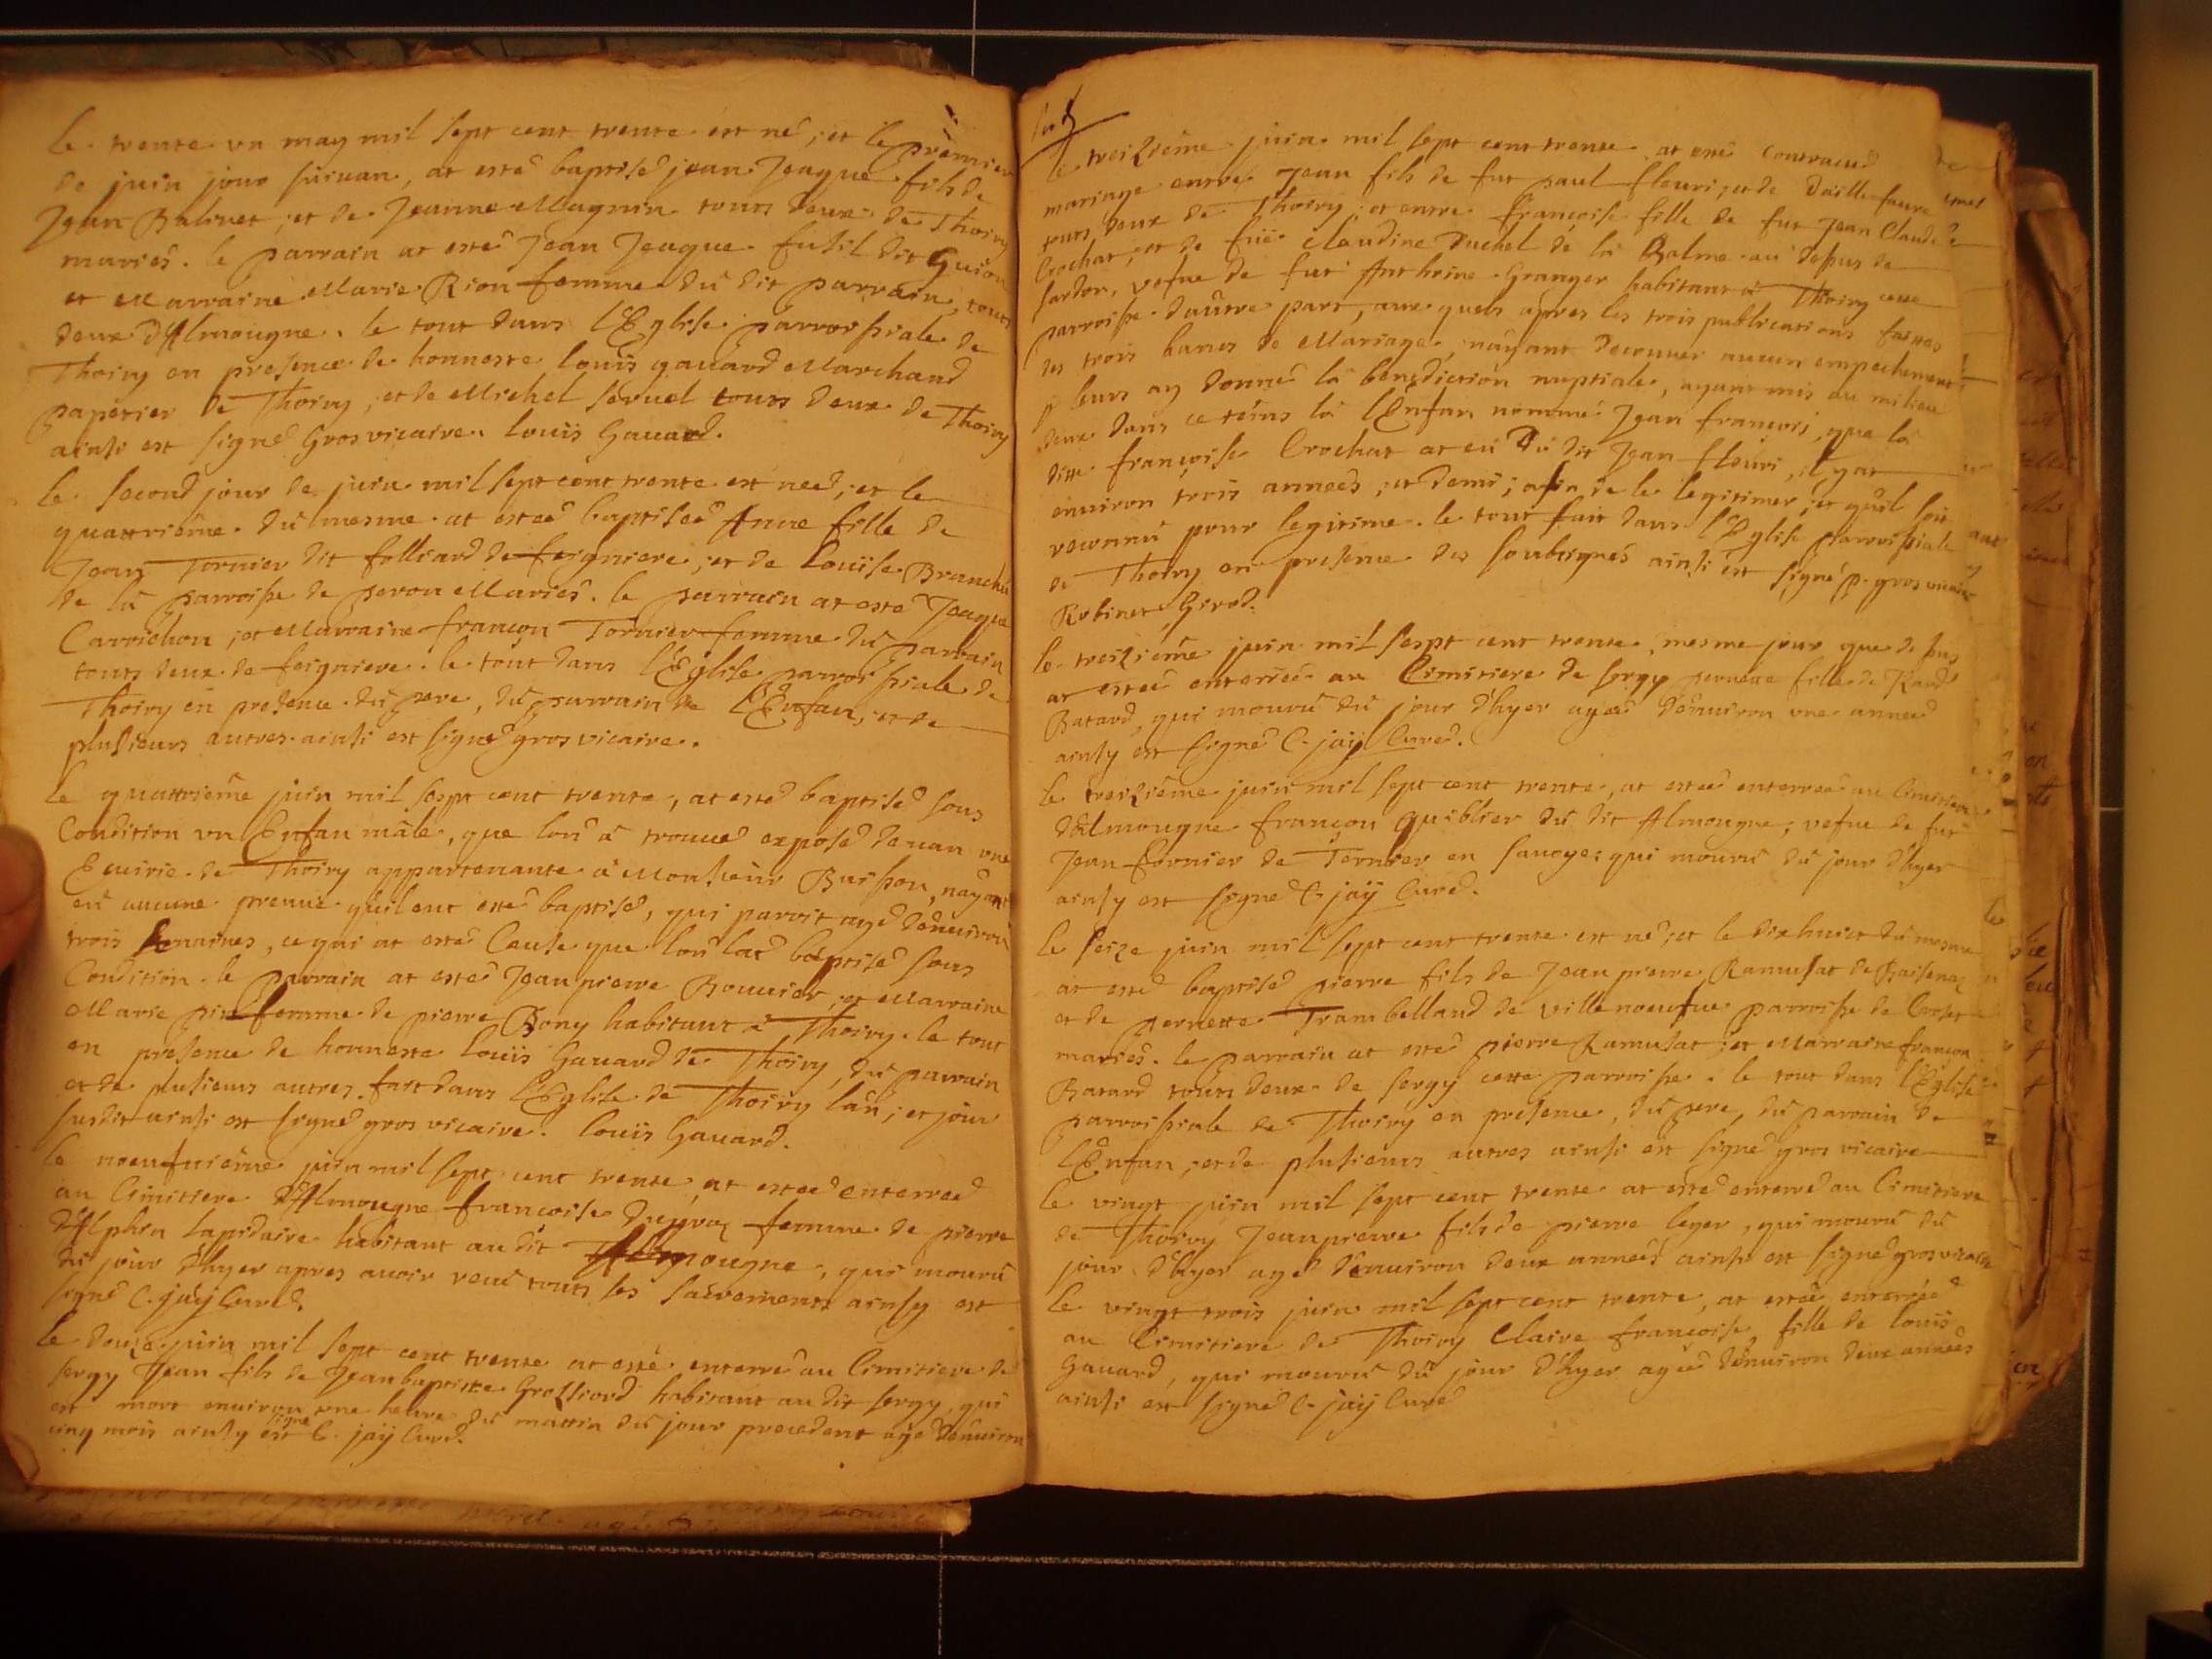 le trente un may mil sept cent trente est né, et le premier
de juin jour suivan, at esté baptisé jean Jeaque fils de
Jean Balivet, et de Jeanne Magnin touts deux de Thoiry
mariés. le parrain at esté Jean Jeaque fusil dit Guion
et Marraine Marie Rion femme du dit parrain, touts
deux d'Almougne. le tout dans l'Eglise parroissiale de
Thoiry en presence de honneste Louis gavard Marchand
papetier de Thoiry, et de Michel servel touts deux de Thoiry
ainsi est signé Gros vicaire. Louis Gavard.
le second jour de juin mil sept cent trente est neé, et le
quattrième du mesme at esteé baptiseé Anne fille de
Jean Tornier dit folliard de feigniere, et de Louise Branchu
de la parroisse de peron Mariés. le parrain at esté Jeaque
Carrichon, et Marraine françon Tornier femme du parrain
touts deux de feigniere. le tout dans l'Eglise parroissiale de
Thoiry en presence du pere, du parrain de l'Enfan, et de
plusieurs autres. ainsi est signé gros vicaire.
le quattrième juin mil sept cent trente, at esté baptisé sous
Condition un Enfan mâle, que lon à trouvé exposé devan une
Ecuirie de Thoiry appartenante à Monsieur Buisson, nayant
eu aucune preuve quil eut esté baptisé, qui paroit agé denviron
trois semaines, ce qui at esté Cause que lon lat baptisé sous
Condition. le parrain at esté Jean pierre Bouvier, et Marraine
Marie femme de pierre Bony habitant à Thoiry. le tout
en presence de honneste Louis Gavard de Thoiry, du parrain
et de plusieurs autres. fait dans l'Eglise de Thoiry lan, et jour
susdit ainsi est signé gros vicaire. Louis Gavard.
le noeufvième juin mil sept cent trente at esteé enterreé
au Cimitiere d'Almougne francoise Dupraz femme de pierre
d'Alphin lapidaire habitant au dit Allmougne, qui mourû
du jour d'hyer apres avoir receu touts les sacrements ainsy est
signé C. jaÿ Curé.
le douze juin mil sept cent trente at esté enterré au Cimitiere de
sergy Jean fils de Jean baptiste Grossiord habitant au dit sergy, qui
est mort environ une heure du mattin du jour precedent agé denviron
cinq mois ainsy est signé C. jaÿ Curé.
le treizième juin mil sept cent trente at esté contracté
mariage entre Jean fils de fut paul fleuri, et de faure
touts deux de Thoiry, et entre françoise fille de fut Jean Claude
Crochat, et de füe Claudine Duchel de la Balme au dessus de
, vefve de fut Anthoine Granger habitant à Thoiry cette
parroisse dautre part, aux quels apres les trois publications faittes
des trois bancs de Mariage, nayant decouver aucun empechement
leurs ay donné la benediction nuptiale, ayant mis au milieu
deux dans ce tems là l'Enfan nommé Jean francois, que la
ditte françoise Crochat at eu du dit Jean fleuri, il y at
environ trois anneés, et demi, afin de le legitimer, et quil soit
reconnû pour legitime. le tout fait dans l'Eglise parroissiale
de Thoiry en presence des soubsignés ainsi est signé p. gros vicaire
Robinet, Girod.
le treizième juin mil sespt cent trente, mesme jour que dessus
at esteé enterreé au Cimitiere de sergy pernette fille de
Batard, qui mourû du jour d'hyer ageé denviron une anneé
ainsy est signé C. jaÿ Curé.
le treizième juin mil sept cent trente, at esteé enterreé au Cimitiere
d'Almougne françon Quiblier du dit Almougne, vefve de fut
Jean fornier de Ternier en Savoye, qui mourû du jour d'hyer
ainsy est signé C. jaÿ Curé.
le seize juin mil sept cent trente est né, et le dix huict du mesme
at esté baptisé pierre fils de Jean pierre Ramusat de Baisenaz
et de pernette Trambelland de ville noeufve parroisse de Crozet
mariés. le parrain at esté pierre Ramusat, et Marraine françon
Batard touts deux de sergy cette parroisse. le tout dans l'Eglise
parroissiale de Thoiry en presence, du pere, du parrain de
l'Enfan, et de plusieurs autres ainsi est signé gros vicaire
le vingt juin mil sept cent trente at esté enterré au Cimitiere
de Thoiry Jean pierre fils de pierre leger, qui mourû du
jour d'hyer agé denviron deux anneés ainsi est signé gros vicaire
le vingt trois juin mil sept cent trente, at esteé enterreé
au Cimitiere de Thoiry Claire françoise fille de Louis
Gavard, qui mourû du jour d'hyer ageé denviron deux anneés
ainsi est signé C. jaÿ Curé